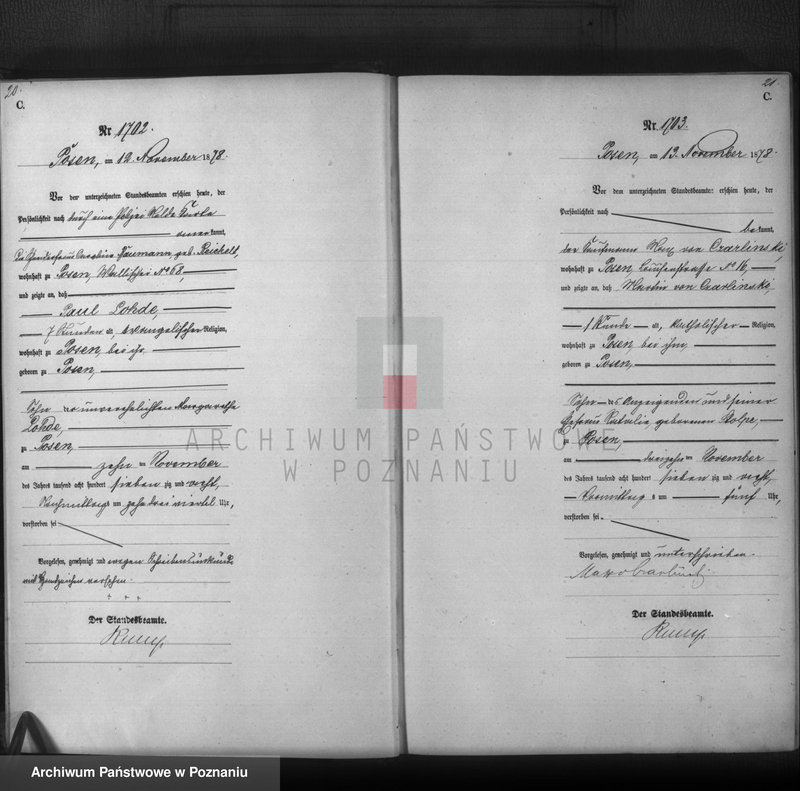 20.
C.
Nr 1702.
Posen, am 12. November 1878.
Vor dem unterzeichneten Standesbeamten erschien heute, der
Persönlichkeit nach durch eine
anerkannt,
die Caroline Naumann, geb. Reichelt,
wohnhaft zu Posen, Wallischei No 68,
und zeigte an, daß
Paul Lohde,
7 Stunden alt, evangelischer Religion,
wohnhaft zu Posen, bei ihr,
geboren zu Posen,
Sohn der unverehelichten Margarethe
Lohde,
zu Posen
am zehn ten November
des Jahres tausend acht hundert sieben zig und acht,
Nachmittags um zehn drei viertel Uhr,
verstorben sei
Vorgelesen, genehmigt und wegen Schreibensunkunde
mit Handzeichen versehen.
+ + +
Der Standesbeamte.
21.
C.
Nr. 1703.
Posen, am 13. November 1878.
Vor dem unterzeichneten Standesbeamten erschien heute, der
Persönlichkeit nach
bekannt,
der Kaufmann Max von Czarlinski,
wohnhaft zu Posen, No 16,
und zeigte an, daß Martin von Czarlinski,
1 Stunde alt, katholischer Religion,
wohnhaft zu Posen, bei ihm,
geboren zu Posen,
Sohn des Anzeigenden und seiner
Ehefrau geborenen
zu Posen,
am dreizehn ten November
des Jahres tausend acht hundert sieben zig und acht,
Vormittags um fünf Uhr,
verstorben sei.
Vorgelesen, genehmigt und unterschrieben.
Max v Czarlinski
Der Standesbeamte.
ARCHIWUM PAŃSTWOWE
W POZNANIU
Archiwum Państwowe w Poznaniu